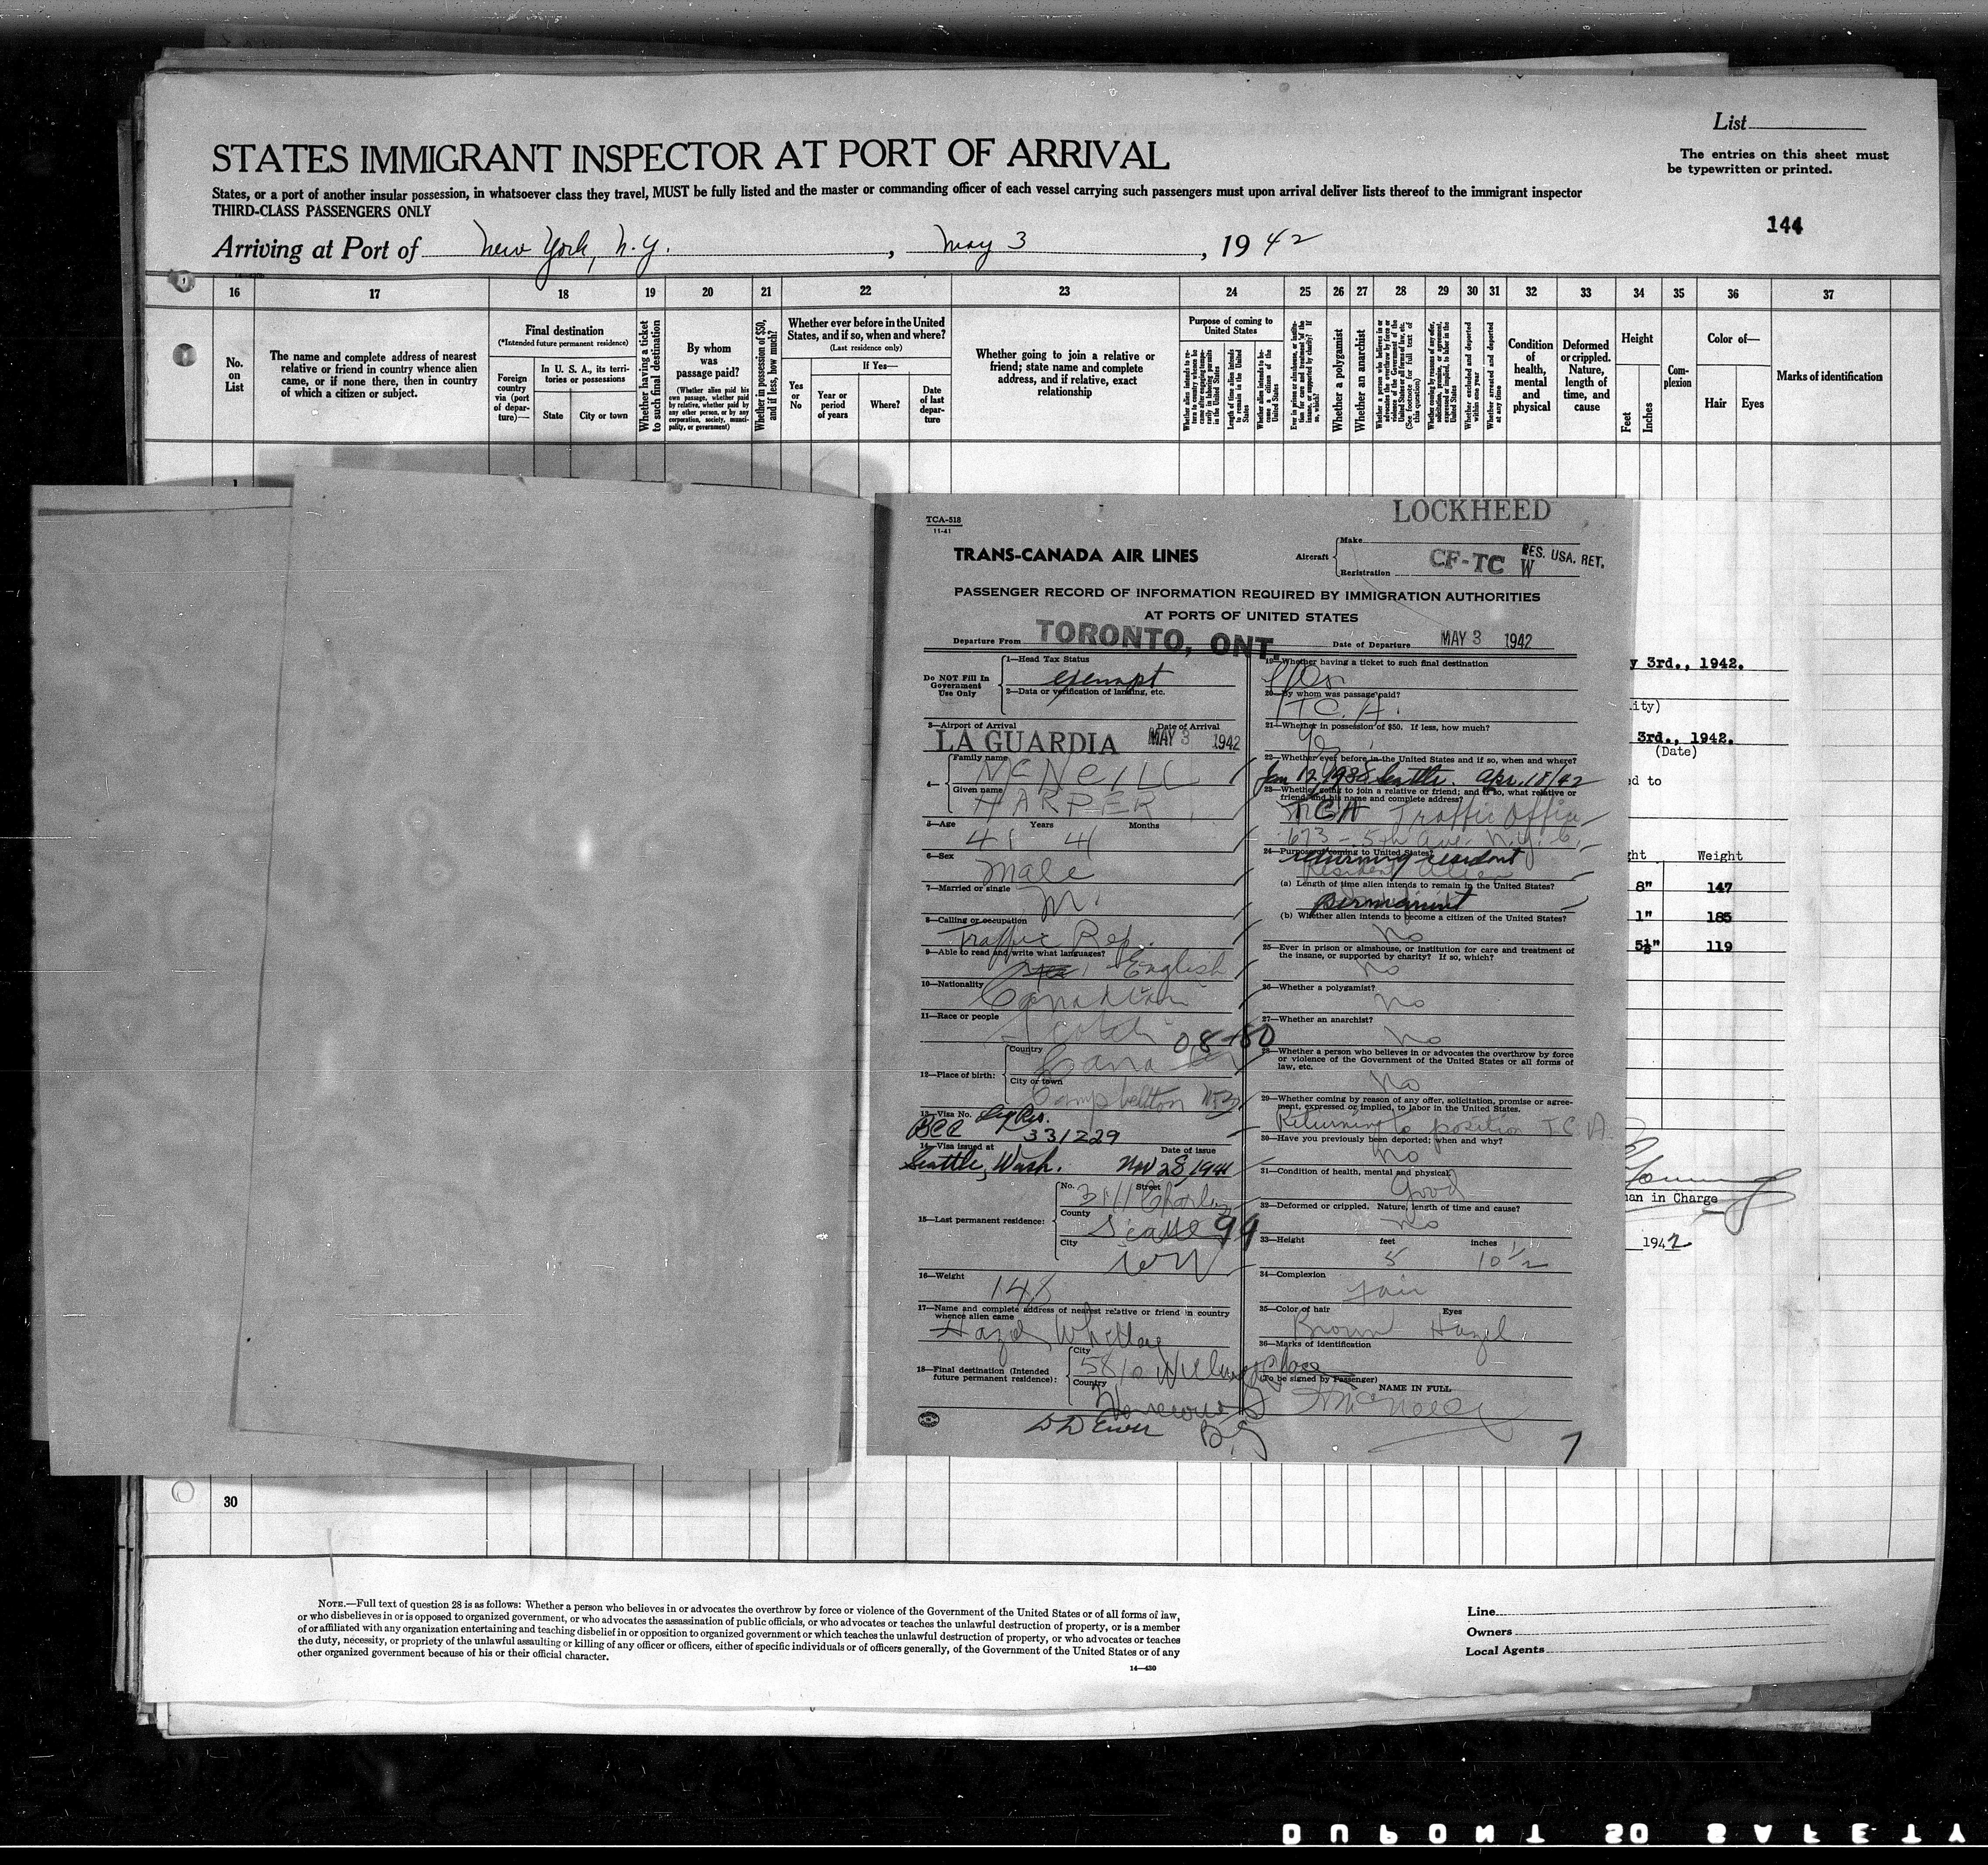 List
STATES IMMIGRANT INSPECTOR AT PORT OF ARRIVAL
The entries on this sheet must
be typewritten or printed.
States, or a port of another insular possession, in whatsoever class they travel, MUST be fully listed and the master or commanding officer of each vessel carrying such passengers must upon arrival deliver lists thereof to the immigrant inspector
THIRD-CLASS PASSENGERS ONLY
144
Arriving at Port of New York, N.Y., May 3, 1942
16 17 18 19 20 21 22 23 24 25 26 27 28 29 30 31 32 33 34 35 36 37
No.
on
List
The name and complete address of nearest
relative or friend in country whence alien
came, or if none there, then in country
of which a citizen or subject.
Final destination
(*Intended future permanent residence)
Foreign
country
via (port
of depar-
ture)—
In U. S. A., its terri-
tories or possessions
State
City or town
Whether having a ticket
to such final destination
By whom
was
passage paid?
(Whether alien paid his
own passage, whether paid
by relative, whether paid by
any other person, or by any
corporation, society, munici-
pality, or government)
Whether in possession of $50,
and if less, how much?
Whether ever before in the United
States, and if so, when and where?
(Last residence only)
Yes
or
No
If Yes—
Year or
period
of years
Where?
Date
of last
depar-
ture
Whether going to join a relative or
friend; state name and complete
address, and if relative, exact
relationship
Purpose of coming to
United States
Whether alien intends to re-
turn to country whence he
came after engaging tempo-
rarily in laboring pursuits
in the United States
Length of time alien intends
to remain in the United
States
Whether alien intends to be-
come a citizen of the
United States
Whether a polygamist
Whether an anarchist
Whether excluded and deported
within one year
Whether arrested and deported
at any time
Condition
of
health,
mental
and
physical
Deformed
or crippled.
Nature,
length of
time, and
cause
Height
Feet
Inches
Com-
plexion
Color of—
Hair
Eyes
Marks of identification
TCA-518
11-41
LOCKHEED
TRANS-CANADA AIR LINES
Aircraft
Make
Registration CF-TC W
RES. USA. RET.
PASSENGER RECORD OF INFORMATION REQUIRED BY IMMIGRATION AUTHORITIES
AT PORTS OF UNITED STATES
Departure From TORONTO, ONT.
Date of Departure MAY 3 1942
Do NOT Fill In
Government
Use Only
1—Head Tax Status
exempt
2—Data or verification of landing, etc.
3—Airport of Arrival
Date of Arrival
LA GUARDIA MAY 3 1942
4—
Family name
McNEILL
Given name
HARPER
5—Age Years Months
41 4
6—Sex
Male
7—Married or single
M.
8—Calling or occupation
Traffic Rep.
9—Able to read and write what languages?
English
10—Nationality
Canadian
11—Race or people
Scotch
08-60
12—Place of birth:
Country
Canada
City or town
Campbellton NB
13—Visa No.
BCC 331229
14—Visa issued at
Date of issue
Seattle, Wash. Nov 28, 1941
15—Last permanent residence:
No. Street
County
Seattle 99
City
16—Weight
148
17—Name and complete address of nearest relative or friend in country
whence alien came
Hazel
18—Final destination (Intended
future permanent residence):
City
Country
B.C.
19—Whether having a ticket to such final destination
Yes
20—By whom was passage paid?
T.C.A.
21—Whether in possession of $50. If less, how much?
Yes
22—Whether ever before in the United States and if so, when and where?
Jan 12, 1938 Seattle. Apr. 18/42
23—Whether going to join a relative or friend; and if so, what relative or
friend, and his name and complete address?
TCA Traffic Office
673 - 5th Ave N.Y.C.
24—Purpose of coming to United States?
returning resident
Resident Alien
(a) Length of time alien intends to remain in the United States?
permanent
(b) Whether alien intends to become a citizen of the United States?
No
25—Ever in prison or almshouse, or institution for care and treatment of
the insane, or supported by charity? If so, which?
No
26—Whether a polygamist?
No
27—Whether an anarchist?
No
28—Whether a person who believes in or advocates the overthrow by force
or violence of the Government of the United States or all forms of
law, etc.
No
29—Whether coming by reason of any offer, solicitation, promise or agree-
ment, expressed or implied, to labor in the United States.
Returning to position T.C.A.
30—Have you previously been deported; when and why?
No
31—Condition of health, mental and physical.
Good
32—Deformed or crippled. Nature, length of time and cause?
No
33—Height feet inches
5 10 1/2
34—Complexion
Fair
35—Color of hair Eyes
Brown Hazel
36—Marks of identification
(To be signed by Passenger)
NAME IN FULL
H McNeill
7
y 3rd., 1942.
ity)
3rd., 1942.
(Date)
ed to
ght Weight
8" 147
1" 185
5½" 119
man in Charge
1942
30
NOTE.—Full text of question 28 is as follows: Whether a person who believes in or advocates the overthrow by force or violence of the Government of the United States or of all forms of law,
or who disbelieves in or is opposed to organized government, or who advocates the assassination of public officials, or who advocates or teaches the unlawful destruction of property, or is a member
of or affiliated with any organization entertaining and teaching disbelief in or opposition to organized government or which teaches the unlawful destruction of property, or who advocates or teaches
the duty, necessity, or propriety of the unlawful assaulting or killing of any officer or officers, either of specific individuals or of officers generally, of the Government of the United States or of any
other organized government because of his or their official character.
14—430
Line
Owners
Local Agents
DUPONT SO SAFETY